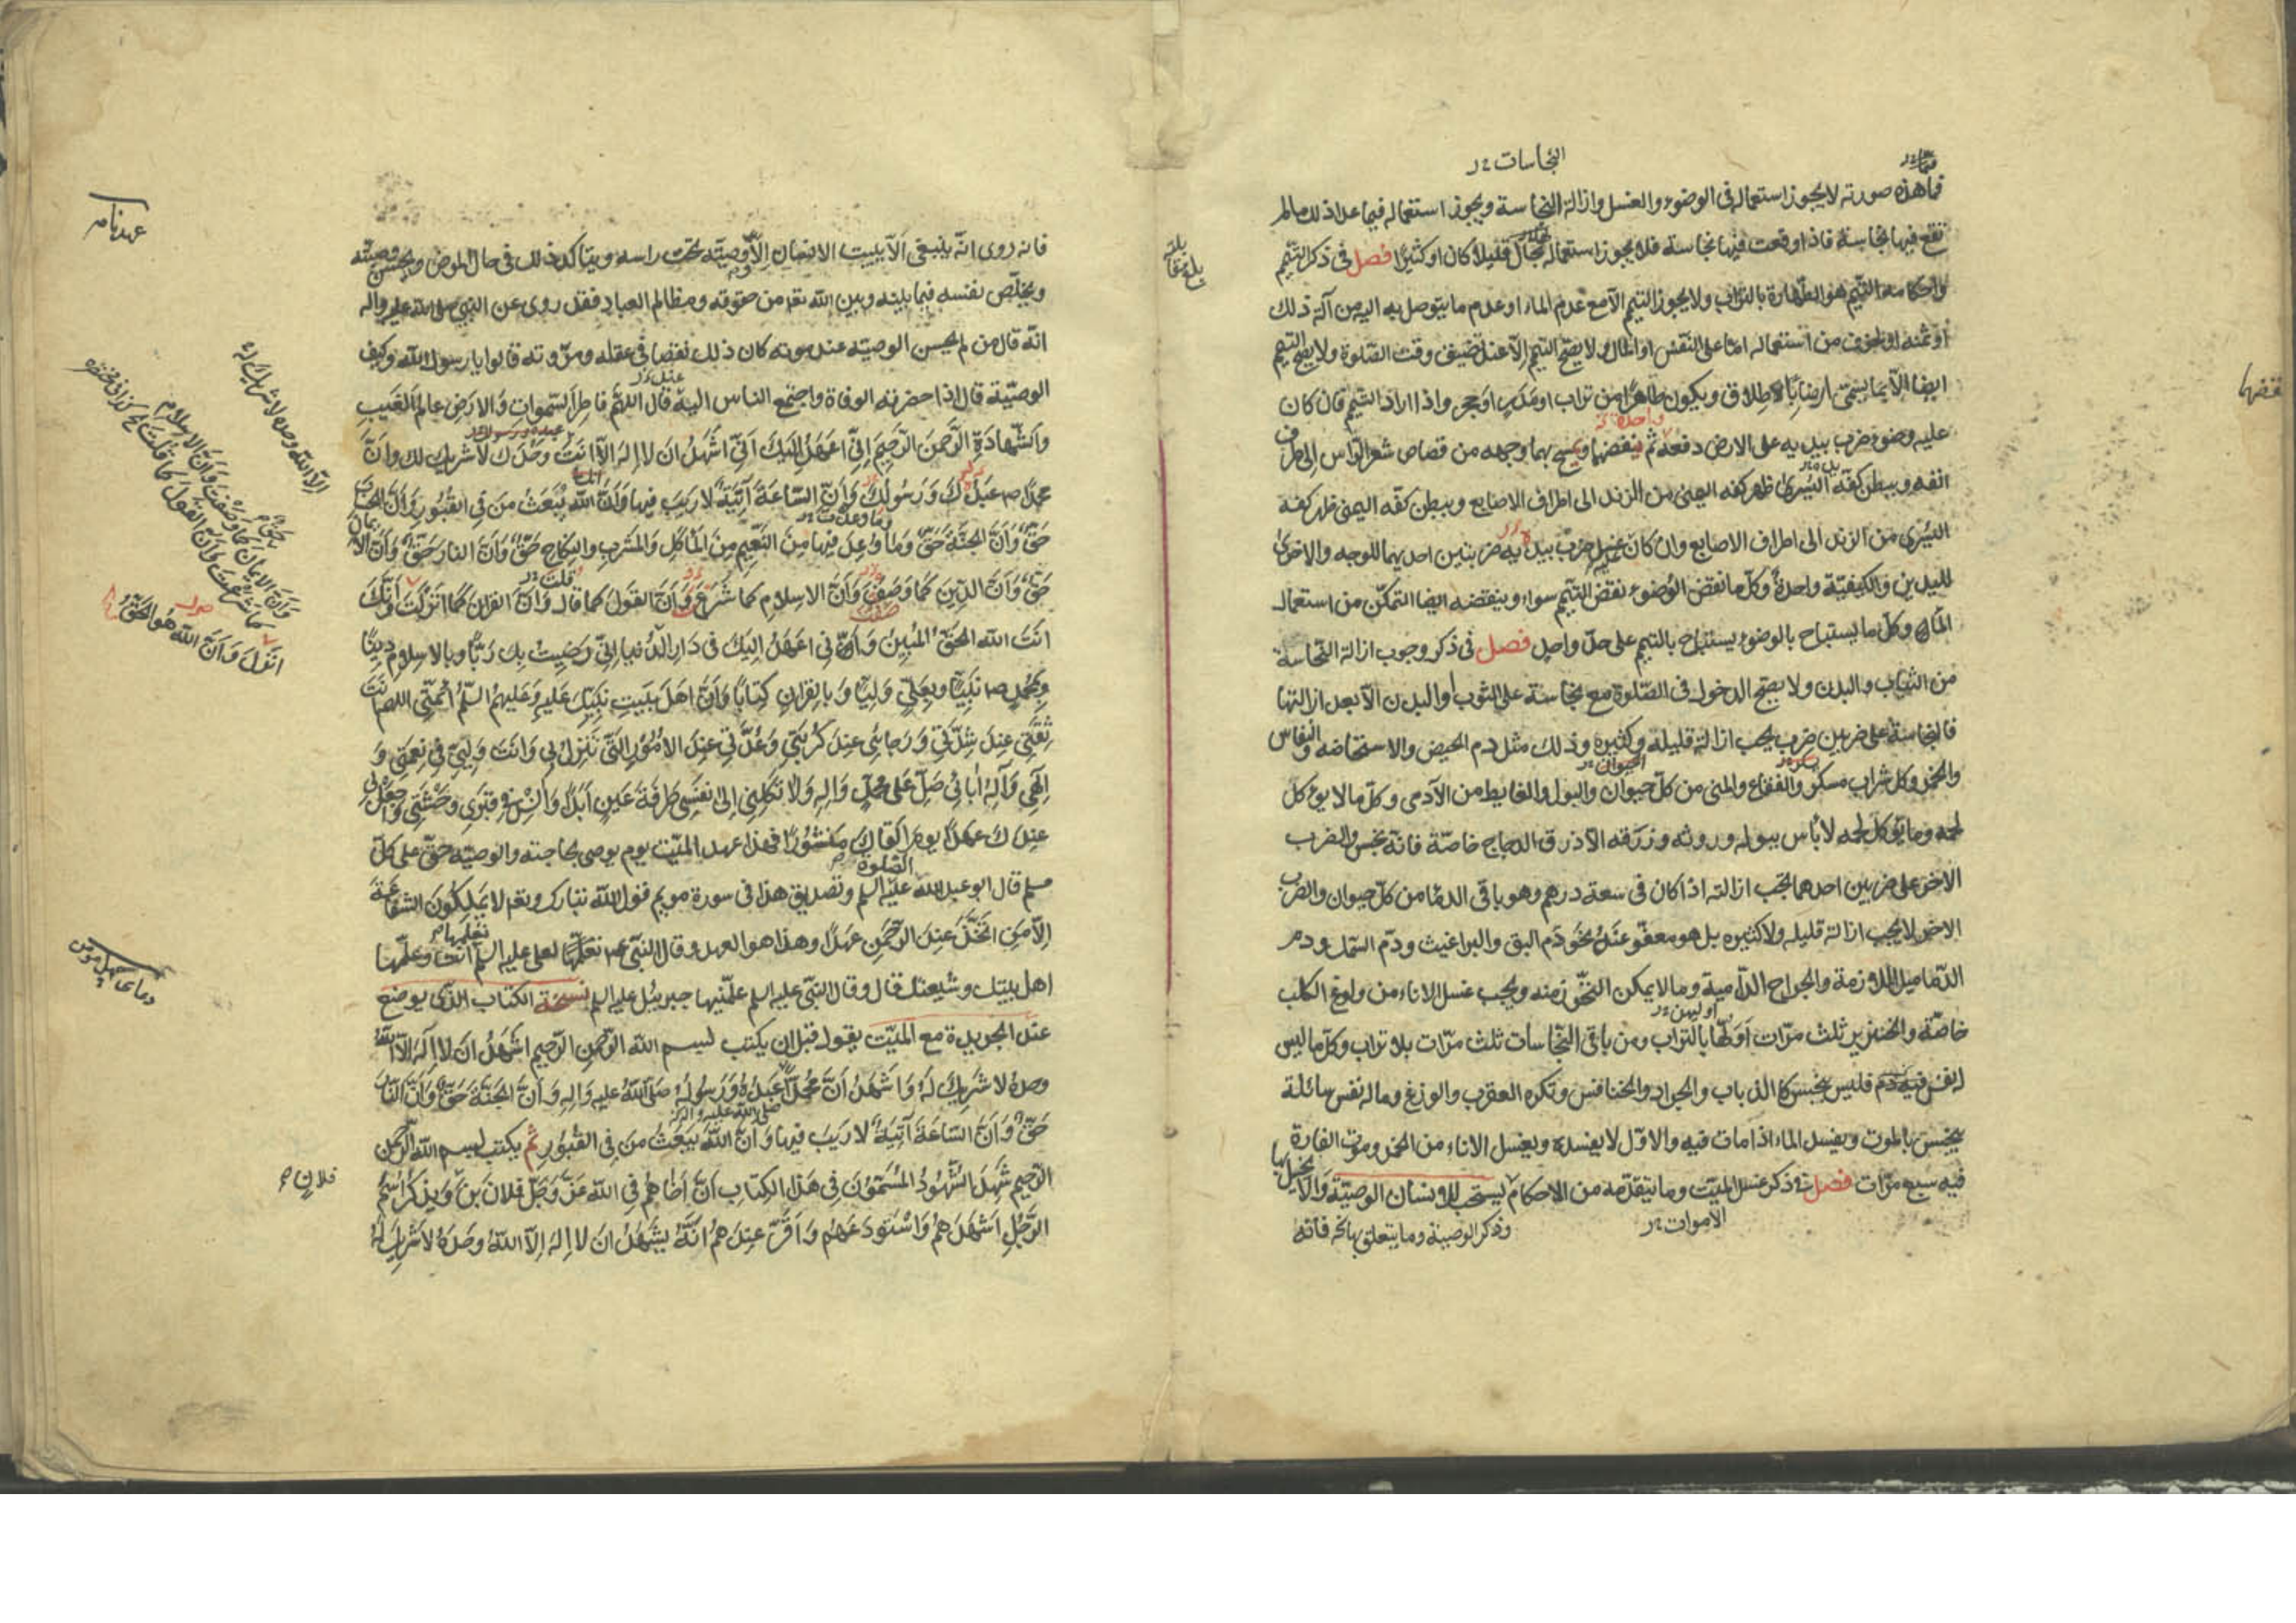 النجاسات
فما هذه صورته لا يجوز استعماله فى الوضوء والغسل وازالة النجاسة ويجوز استعماله فيما عدا ذلك مالم
تقع فيها نجاسة فاذا وقعت فيها نجاسة فلا يجوز استعماله بحال قليلا كان او كثيرا فصل فى ذكر التيمّم
واحكامه التيمّم هو الطهارة بالتراب ولا يجوز التيمم الا مع عدم الماء او عدم ما يتوصل به اليه من آلة ذلك
او ثمنه او الخوف من استعماله امّا على النفس او المال ولا يصح التيمم الا عند تضيق وقت الصلوة ولا يصح التيمم
ايضا الا بما يسمّى ارضا بالاطلاق ويكون طاهرا من تراب او مدر او حجر واذا اراد التيمم فان كان
عليه وضوء ضرب بيديه على الارض دفعة ثم ينفضهما ويمسح بهما وجهه من قصاص شعر الراس الى طرف
انفه وببطن كفّه اليسرى ظهر كفه اليمنى من الزند الى اطراف الاصابع وببطن كفّه اليمنى ظهر كفه
اليسرى من الزند الى اطراف الاصابع وان كان عليه غسل ضرب بيديه ضربتين احديهما للوجه والاخرى
لليدين والكيفيّة واحدة وكلّ ما نقض الوضوء نقض التيمّم سواء وينقضه ايضا التمكّن من استعمال
الماء وكلّ ما يستباح بالوضوء يستباح بالتيمم على حدّ واحد فصل فى ذكر وجوب ازالة النجاسة
من الثياب والبدن ولا يصح الدخول فى الصّلوة مع نجاسة على الثوب او البدن الا بعد ازالتها
فالنجاسة على ضربين ضرب يجب ازالة قليله وكثيره وذلك مثل دم الحيض والاستحاضه والنفاس
والخمر وكل شراب مسكر والفقاع والمنى من كلّ حيوان والبول والغايط من الآدمى وكلّ ما لا يوكل
لحمه وما يوكل لحمه لا بأس ببوله وروثه وزرقه الا ذرق الدجاج خاصّة فانّه نجس والضرب
الاخر على ضربين احدهما تجب ازالته اذا كان فى سعة درهم وهو باقى الدما من كلّ حيوان والضرب
الاخر لا يجب ازالة قليله ولا كثيره بل هو معفوّ عنه نحو دم البق والبراغيث ودم السّمك ودم
الدّماميل اللازمة والجراح الدّامية وما لا يمكن التحرّز منه ويجب غسل الاناء من ولوغ الكلب
خاصّة والخنزير ثلث مرّات اوّلها بالتراب ومن باقى النّجاسات ثلث مرّات بلا تراب وكلّ ما ليس
له نفس فليس بنجس كالذباب والجراد والخنافس وتكره العقرب والوزغ وما له نفس سائلة
ينجس بالموت ويفسد الماء اذا مات فيه والاوّل لا يفسده ويغسل الاناء من الخمر وموت الفارة
فيه سبع مرّات فصل فى ذكر غسل الميّت وما يتقدّمه من الاحكام يستحب للانسان الوصيّة
الاموات
وذكر الوصية وما يتعلق بها فانه
فانه روى انّه ينبغى الا يبيت الانسان الّا ووصيّته تحت راسه ويتاكد ذلك فى حال المرض ويحسن وصيّته
ويخلّص نفسه فيما بينه وبين الله تعم من حقوقه ومظالم العباد فقد روى عن النبى صلى الله عليه واله
انّه قال من لم يحسن الوصيّة عند موته كان ذلك نقصا فى عقله ومروّته قالوا يا رسول الله وكيف
الوصيّة قال اذا حضرته الوفاة واجتمع الناس اليه قال اللهم فاطر السّموات والارض عالم الغيب
والشّهادة الرّحمن الرّحيم انّى اعهد اليك انّى اشهد ان لا اله الا انت وحدك لا شريك لك وانّ
محمدا ص عبدك ورسولك وانّ السّاعة آتية لا ريب فيها وانّ الله يبعث من فى القبور وانّ الحساب
حقّ وانّ الجنّة حقّ وما وعد فيها من النّعيم من المأكل والمشرب والنكاح حقّ وانّ النار حقّ وانّ الايمان
حقّ وانّ الدّين كما وصفت وانّ الاسلام كما شرعت وانّ القول كما قال وانّ القران كما انزلت وانّك
انت الله الحقّ المبين وانّى اعهد اليك فى دار الدّنيا انّى رضيت بك ربّا وبالاسلام دينا
وبمحمد ص نبيّا وبعلىّ وليّا وبالقران كتابا وانّ اهل بيت نبيّك عليه وعليهم السّلم ائمّتى اللهم انت
ثقتى عند شدّتى ورجائى عند كربتى وعدّتى عند الامور الّتى تنزل بى وانت وليّى فى نعمتى و
الهى وآله أبائى صلّ على محمد واله ولا تكلنى الى نفسى طرفة عين ابدا وانس فى قبرى وحشتى واجعل لى
عندك عهدا يوم القاك منشورا فهذا عهد الميّت يوم يوصى بحاجته والوصيّه حقّ على كلّ
مسلم قال ابو عبد الله عليه السلم وتصديق هذا فى سورة مريم قول الله تبارك وتعم لا يملكون الشفاعة
الا من اتّخذ عند الرّحمن عهدا وهذا هو العهد وقال النبى ص لعلى عليه السلم تعلّمها انت وعلّمها
اهل بيتك وشيعتك قال وقال النبى عليه السلم علّمنيها جبريئل عليه السلم نسخة الكتاب الذّى يوضع
عند الجريدة مع الميّت يقول قبل ان يكتب بسم الله الرّحمن الرّحيم اشهد ان لا اله الا الله
وحده لا شريك له واشهد انّ محمدا عبده ورسوله صلى الله عليه واله وانّ الجنّة حقّ وانّ النّار
حقّ وانّ السّاعة آتية لا ريب فيها وانّ الله يبعث من فى القبور ثم يكتب بسم الله الرّحمن
الرّحيم شهد الشّهود المسمّون فى هذا الكتاب انّ اخاهم فى الله عزّ وجلّ فلان بن ويذكر اسم
الرّجل اشهدهم واستودعهم واقرّ عندهم انّه يشهد ان لا اله الا الله وحده لا شريك له
عهدنامه
الّا الله وحده لا شريك له
وانّ الدين كما وصفت وانّ الاسلام
كما شرعت وانّ القول كما قلت
انزل وانّ الله هو الحقّ
فلان